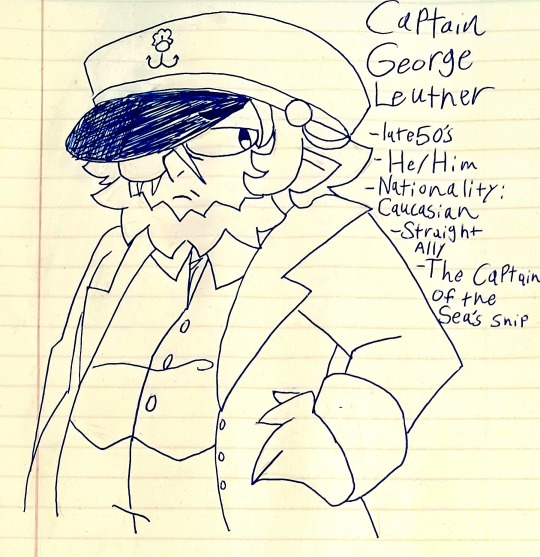 Captain
George
Leutner
-late 50's
-He/Him
-Nationality:
Caucasian
-Straight
Ally
-The Captain
of the
Sea's Ship